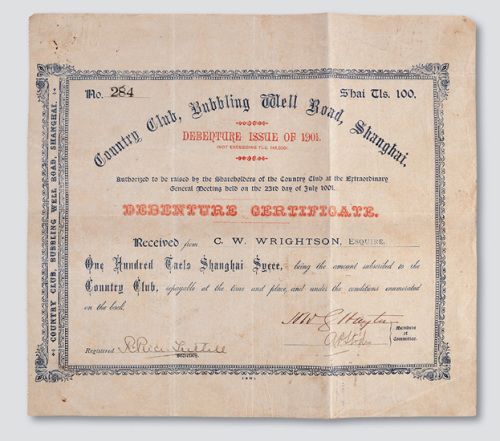 No. 284
Shai Tls. 100.
Country Club, Bubbling Well Road, Shanghai.
DEBENTURE ISSUE OF 1901.
Authorized to be raised by the Shareholders of the Country Club at the Extraordinary
General Meeting held on the 23rd day of July 1901.
DEBENTURE CERTIFICATE.
Received from C. W. WRIGHTSON, ESQUIRE.
One Hundred Taels Shanghai Sycee, being the amount subscribed to the
Country Club, repayable at the time and place, and under the conditions enumerated
on the back.
Members
of
Committee.
Registered
Secretary.
COUNTRY CLUB, BUBBLING WELL ROAD, SHANGHAI.